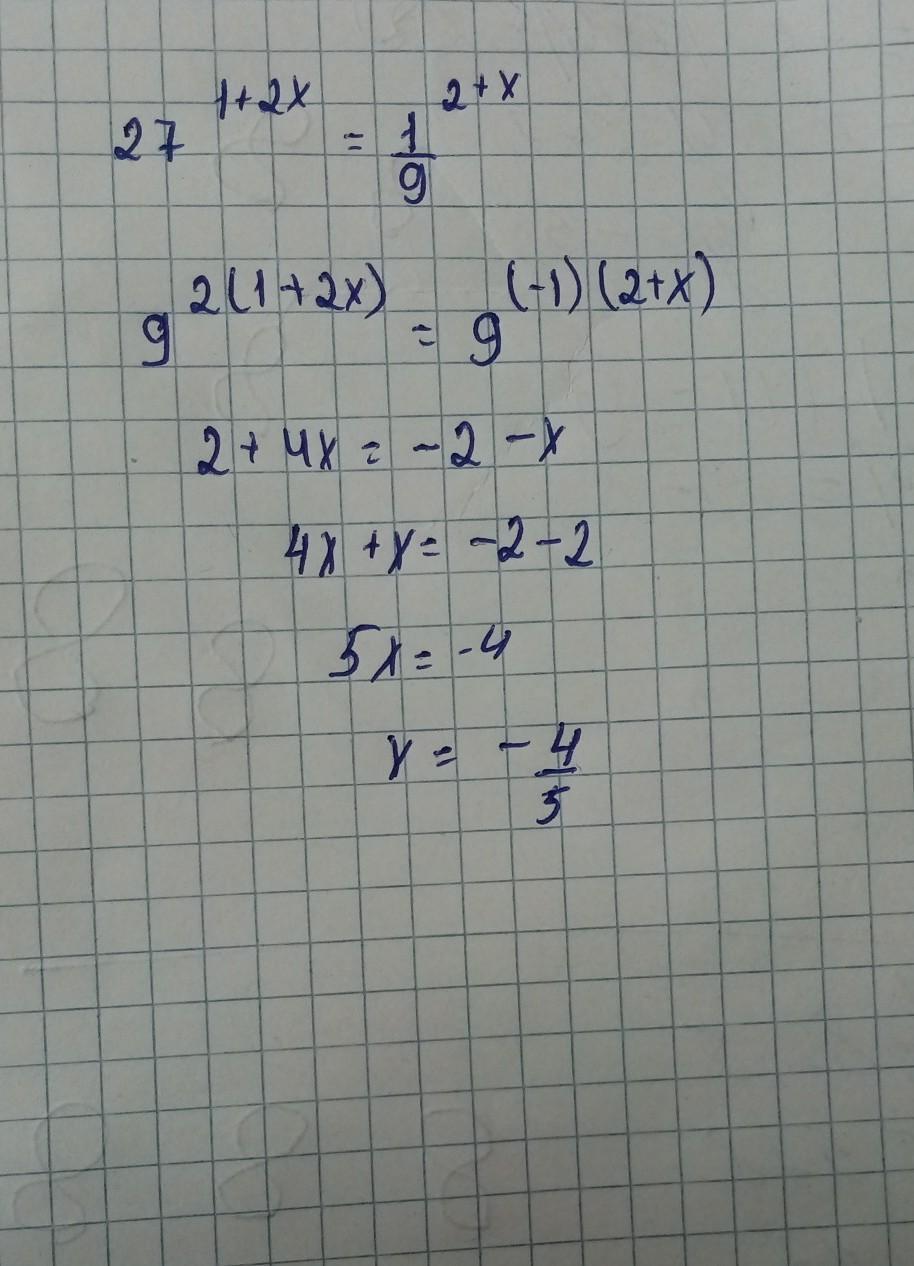 27^(1+2x) = 1/9^(2+x)
9^(2(1+2x)) = 9^((-1)(2+x))
2 + 4x = -2 - x
4x + x = -2 - 2
5x = -4
x = - 4/5